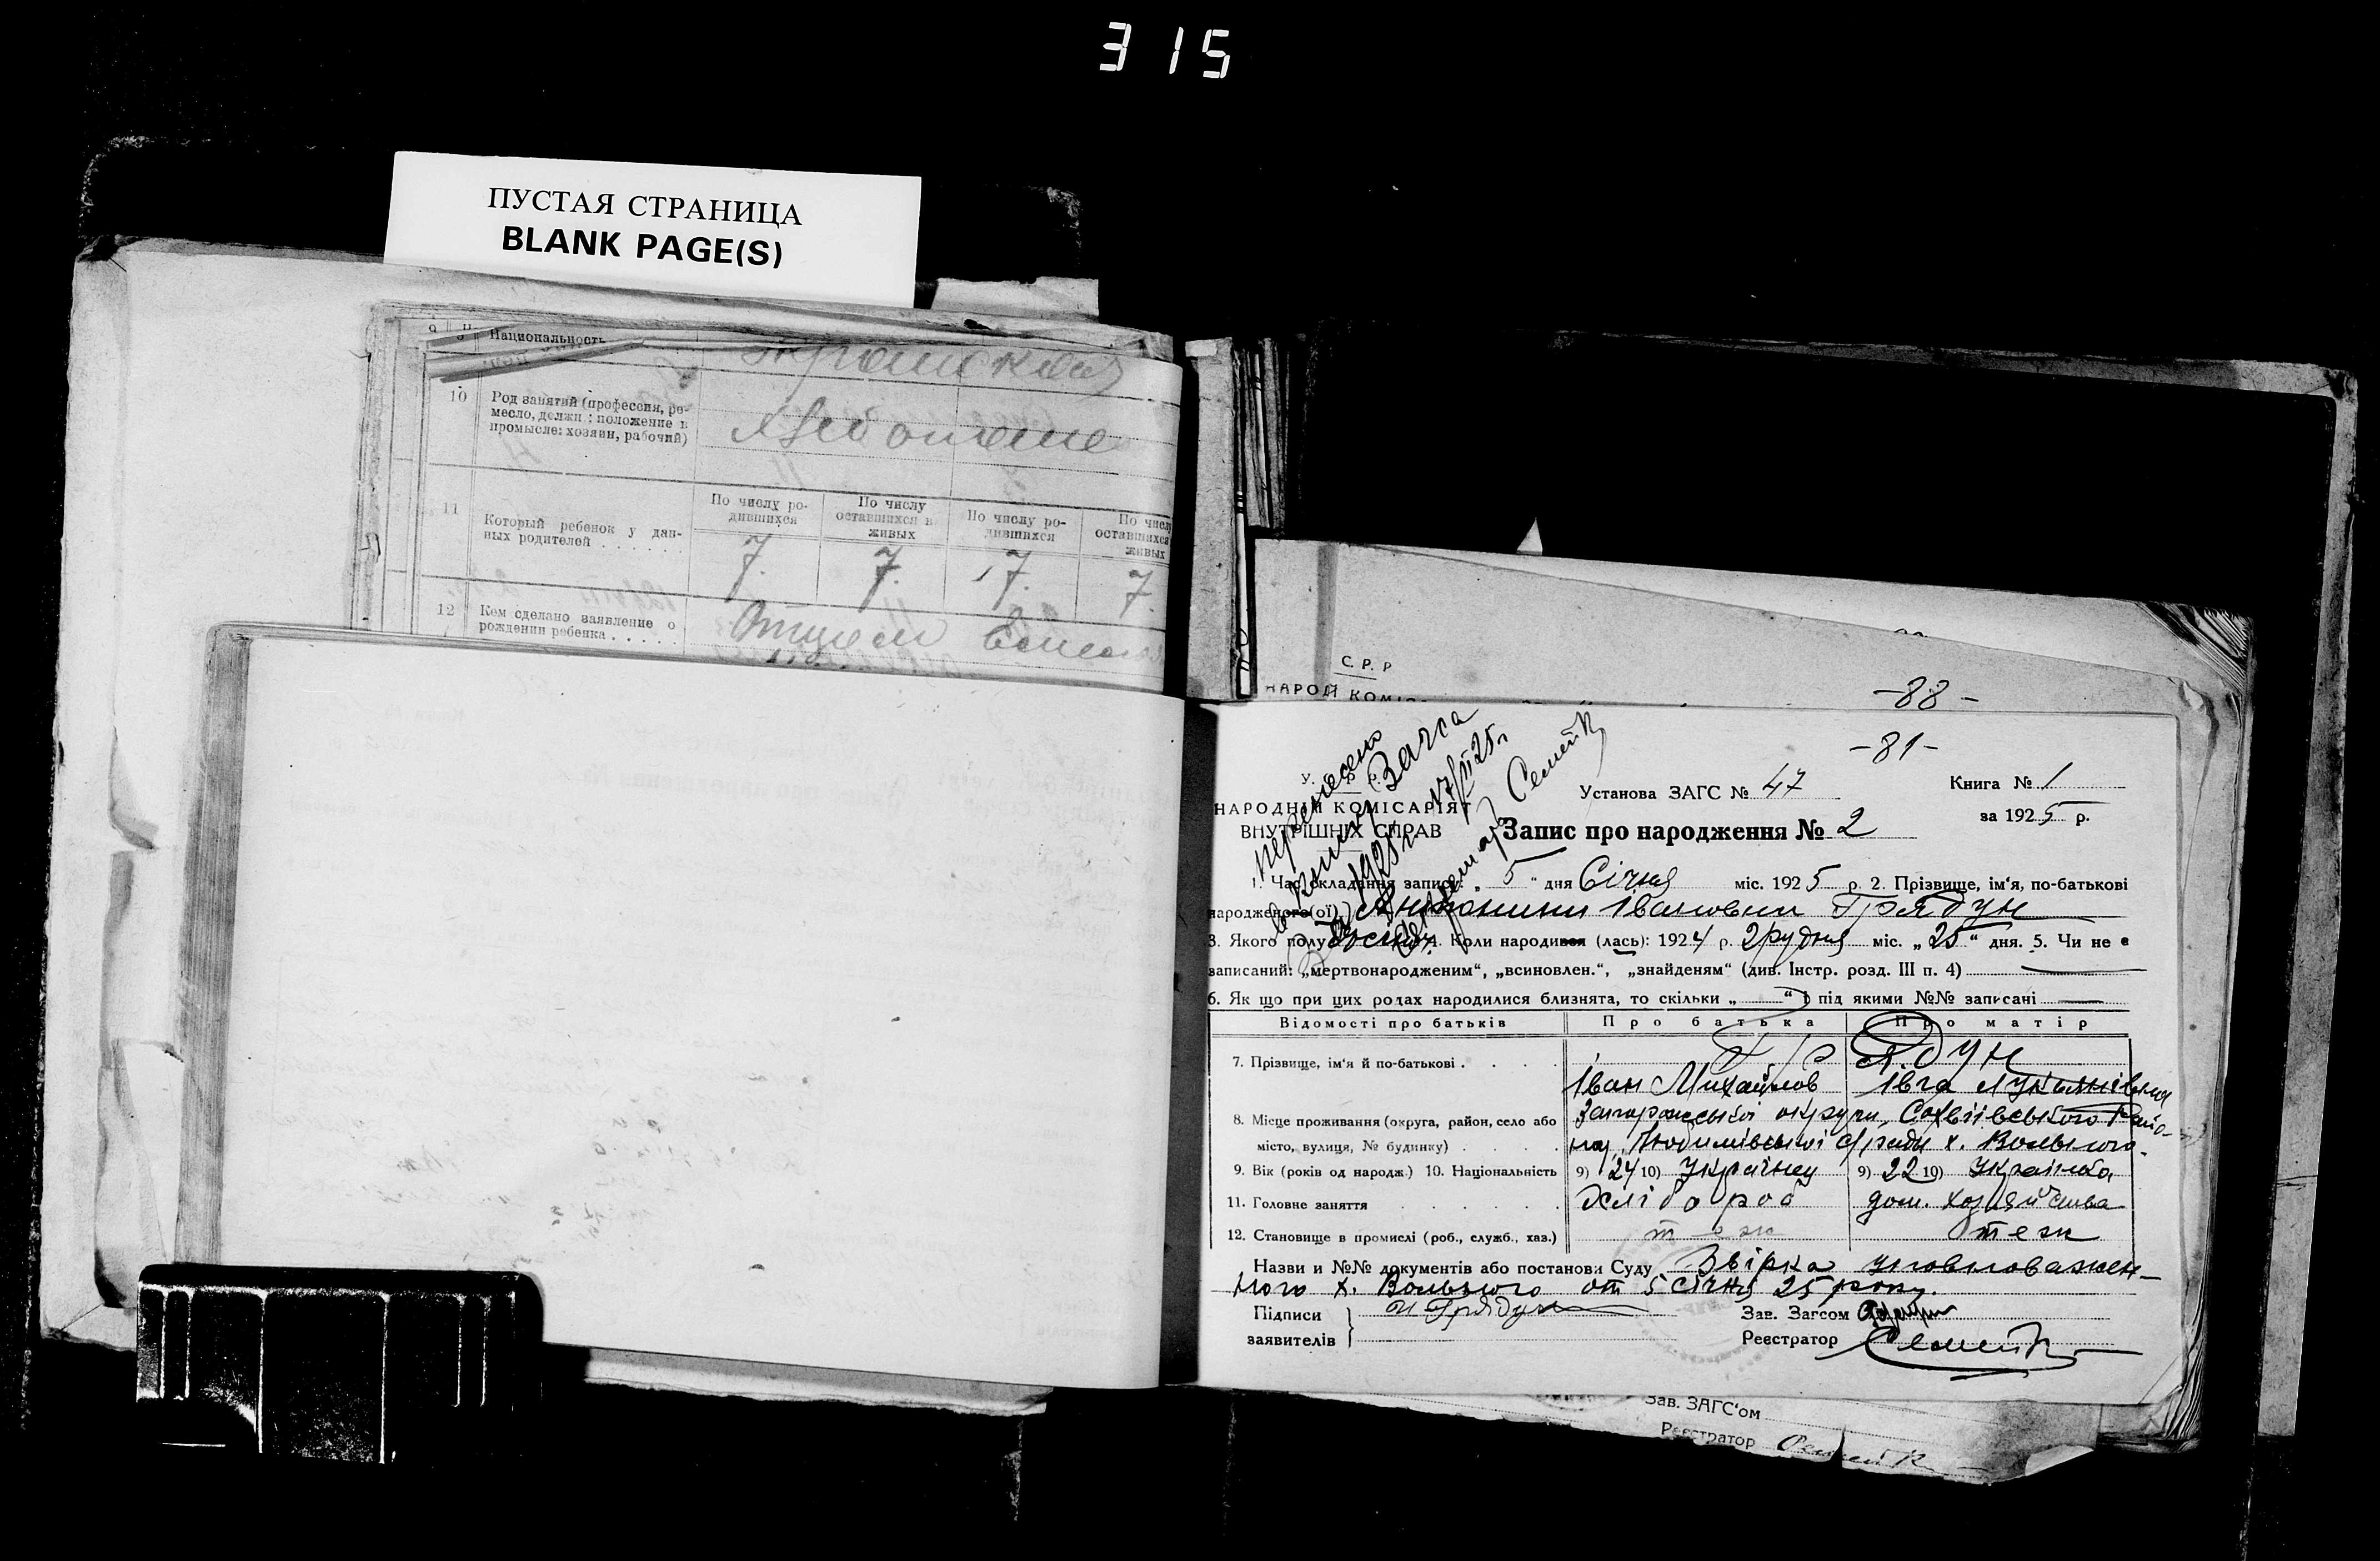 315
ПУСТАЯ СТРАНИЦА
BLANK PAGE(S)
Национальность
10 Род занятий (профессия, ре-
месло, должн.; положение в
промысле: хозяин, рабочий)
11 Который ребенок у дан-
ных родителей
По числу ро-
дившихся
По числу
оставшихся в
живых
По числу ро-
дившихся
По числу
оставшихся
живых
7. 7. 7. 7.
12 Кем сделано заявление о
рождении ребенка
Отцем
С. Р. Р
НАРОД КОМІС
-88-
-81-
У.
НАРОДНІЙ КОМІСАРІЯТ
ВНУТРІШНІХ СПРАВ
перенесено
в книгу Загса
1925 г. 17/II 25 г.
Секретарь Семей
Установа ЗАГС № 47
Книга № 1
за 1925 р.
Запис про народження № 2
1. Час складання запису: „5“ дня Січня міс. 1925 р. 2. Прізвище, ім'я, по-батькові
народженого(ої) Антонини Івановни Грядун
3. Якого полу жіноч. 4. Коли народився (лась): 1924 р. Грудня міс. „25“ дня. 5. Чи не є
записаний: „мертвонародженим“, „всиновлен.“, „знайденям“ (див. Інстр. розд. III п. 4)
6. Як що при цих родах народилися близнята, то скільки „ “ і під якими №№ записані
Відомості про батьків Про батька Про матір
7. Прізвище, ім'я й по-батькові Грядун
Іван Михайлов Івга Лукьянівна
8. Місце проживання (округа, район, село або
місто, вулиця, № будинку)
Запорожської округи, Софіївського Райо-
на, Любимівської с/ради х. Вольного.
9. Вік (років од народж.) 10. Національність 9) 24 10) Українец 9) 22 10) Українка
11. Головне заняття Хлібороб дом. хозяйства
12. Становище в промислі (роб., служб., хаз.) теж теж
Назви и №№ документів або постанови Суду Звірка уповноважен-
ного х. Вольного от 5 січня 25 року.
Підписи
заявителів
И Грядун
Зав. Загсом
Реєстратор Семей
Зав. ЗАГС'ом
Реєстратор